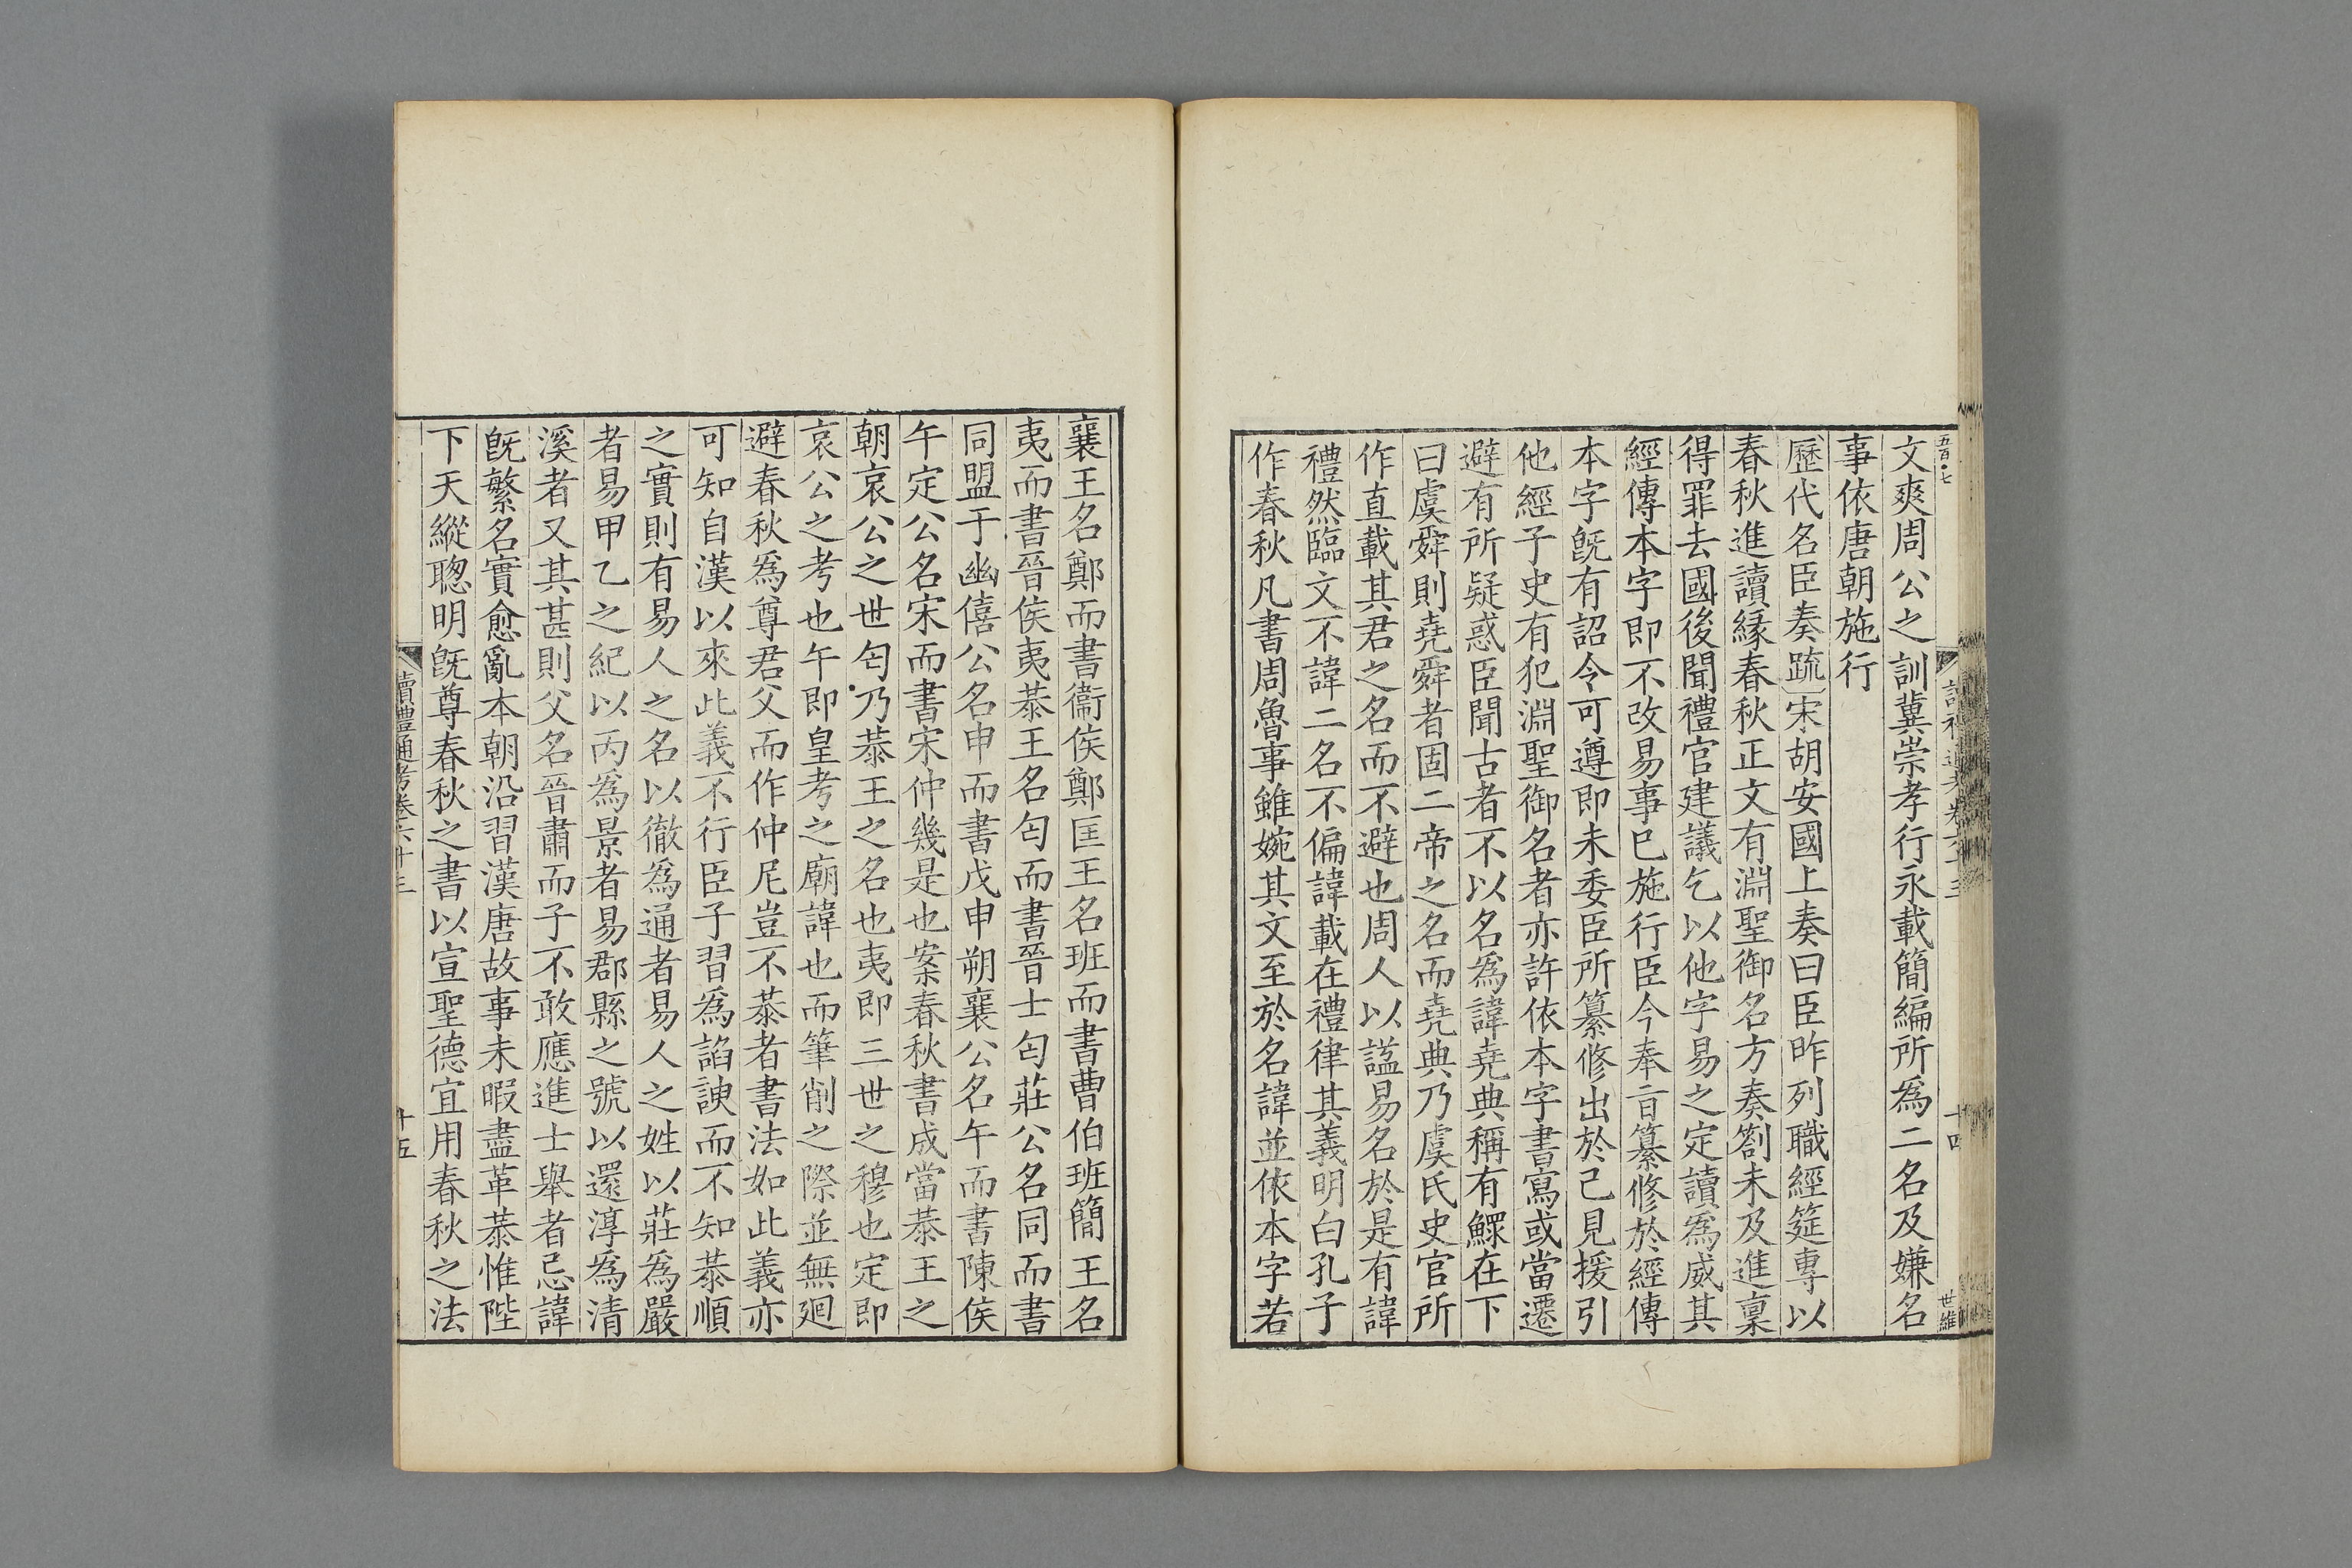 五百七
讀禮通考卷六十三
十四
世維
文爽周公之訓冀崇孝行永載簡編所為二名及嫌名
事依唐朝施行
歷代名臣奏疏宋胡安國上奏曰臣昨列職經筵專以
春秋進讀緣春秋正文有淵聖御名方奏劄未及進稟
得罪去國後聞禮官建議乞以他字易之定讀爲威其
經傳本字即不改易事已施行臣今奉旨纂修於經傳
本字旣有詔令可遵即未委臣所纂修出於己見援引
他經子史有犯淵聖御名者亦許依本字書寫或當遷
避有所疑惑臣聞古者不以名爲諱堯典稱有鰥在下
曰虞舜則堯舜者固二帝之名而堯典乃虞氏史官所
作直載其君之名而不避也周人以諡易名於是有諱
禮然臨文不諱二名不偏諱載在禮律其義明白孔子
作春秋凡書周魯事雖婉其文至於名諱並依本字若
襄王名鄭而書衞侯鄭匡王名班而書曹伯班簡王名
夷而書晉侯夷恭王名匄而書晉士匄莊公名同而書
同盟于幽僖公名申而書戊申朔襄公名午而書陳侯
午定公名宋而書宋仲幾是也案春秋書成當恭王之
朝哀公之世匄乃恭王之名也夷即三世之穆也定即
哀公之考也午即皇考之廟諱也而筆削之際並無廻
避春秋爲尊君父而作仲尼豈不恭者書法如此義亦
可知自漢以來此義不行臣子習爲諂諛而不知恭順
之實則有易人之名以徹爲通者易人之姓以莊爲嚴
者易甲乙之紀以丙爲景者易郡縣之號以還淳爲清
溪者又其甚則父名晉肅而子不敢應進士舉者忌諱
旣繁名實愈亂本朝沿習漢唐故事未暇盡革恭惟陛
下天縱聰明旣尊春秋之書以宣聖德宜用春秋之法
讀禮通考卷六十三
十五